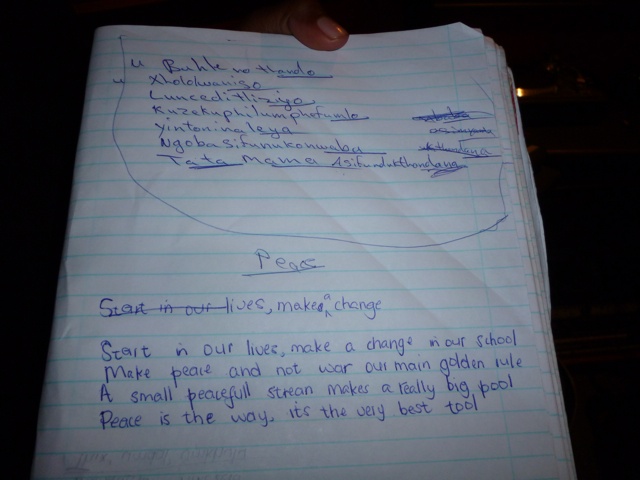 u Buhle no thando
Xhololwaniso
Luncedi tliziyo
Kuzekuphilumphefumlo
Yintonina leya
Ngobasifunukonwaba
Tata Mama
Peace
Start in our lives, make a change
Start in our lives, make a change in our school
Make peace and not war our main golden rule
A small peacefull strean makes a really big pool
Peace is the way, its the very best tool